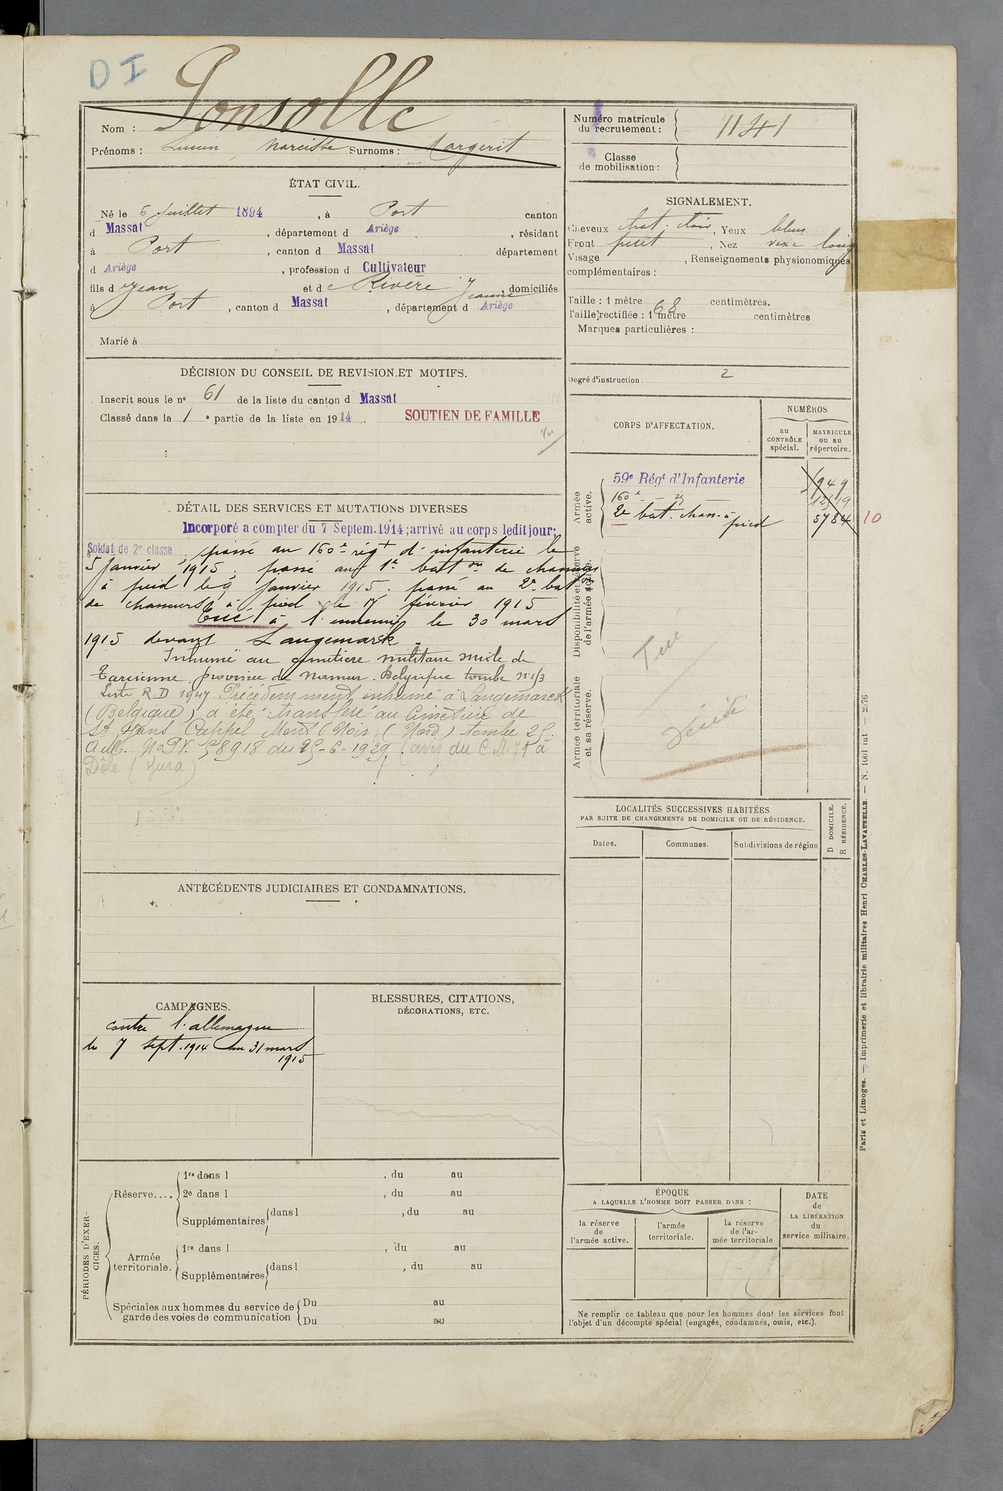 D I
Ponsolle
Nom :
Prénoms : Lucien Narcisse Surnoms : Margerit
Numéro matricule
du recrutement : 1141
Classe
de mobilisation :
ÉTAT CIVIL.
Né le 6 Juillet 1894 , à Port canton
d Massat , département d Ariège , résidant
à Port , canton d Massat département
d Ariège , profession d Cultivateur
fils d Jean et d Rivère Jeanne , domiciliés
à Port , canton d Massat , département d Ariège
Marié à
SIGNALEMENT.
Cheveux chat. clair , Yeux bleus
Front petit , Nez long
Visage , Renseignements physionomiques
complémentaires :
Taille : 1 mètre 68 centimètres.
Taille rectifiée : 1 mètre centimètres
Marques particulières :
Degré d'instruction 2
DÉCISION DU CONSEIL DE REVISION ET MOTIFS.
Inscrit sous le nº 61 de la liste du canton d Massat
Classé dans la 1 e partie de la liste en 1914 .
SOUTIEN DE FAMILLE
CORPS D'AFFECTATION.
NUMÉROS
au
CONTRÔLE
spécial.
MATRICULE
ou au
répertoire.
Armée
active.
59e Régt d'Infanterie
160e
2e bat. chas. à pied 5784 10
Disponibilité et réserve
de l'armée active.
Tué
Armée territoriale
et sa réserve.
DÉTAIL DES SERVICES ET MUTATIONS DIVERSES
Incorporé a compter du 7 Septem. 1914; arrivé au corps ledit jour;
Soldat de 2e classe , passé au 160e régt d'infanterie le
5 janvier 1915. passé au 1er batton de chasseurs
à pied le 9 janvier 1915. passé au 2e baton
de chasseurs à pied le 17 février 1915
Tué à l'ennemi le 30 mars
1915 devant Langemark.
Inhumé au cimetière militaire mixte de
Tarcienne province de Namur. Belgique tombe nº 1/3
Liste R.D 1947 Précédemment inhumé à Langemarck
(Belgique) a été transféré au Cimetière de
St Jans Cappel Mont Noir (Nord) tombe 25.
du 25-6-1929 (avis du à
Dôle (Jura)
LOCALITÉS SUCCESSIVES HABITÉES
PAR SUITE DE CHANGEMENTS DE DOMICILE OU DE RÉSIDENCE.
Dates.
Communes.
Subdivisions de région
D DOMICILE.
R RÉSIDENCE.
ANTÉCÉDENTS JUDICIAIRES ET CONDAMNATIONS.
CAMPAGNES.
contre l'allemagne
du 7 sept. 1914 au 31 mars
1915
BLESSURES, CITATIONS,
DÉCORATIONS, ETC.
PÉRIODES D'EXER-
CICES.
Réserve....
1re dans l , du au
2e dans l , du au
Supplémentaires dans l , du au
Armée
territoriale.
1re dans l , du au
Supplémentaires dans l , du au
Spéciales aux hommes du service de
garde des voies de communication
Du au
Du au
ÉPOQUE
A LAQUELLE L'HOMME DOIT PASSER DANS :
la réserve
de
l'armée active.
l'armée
territoriale.
la réserve
de l'ar-
mée territoriale
DATE
de
LA LIBÉRATION
du
service militaire.
Ne remplir ce tableau que pour les hommes dont les services font
l'objet d'un décompte spécial (engagés, condamnés, omis, etc.).
Paris et Limoges. — Imprimerie et librairie militaires Henri CHARLES-LAVAUZELLE.